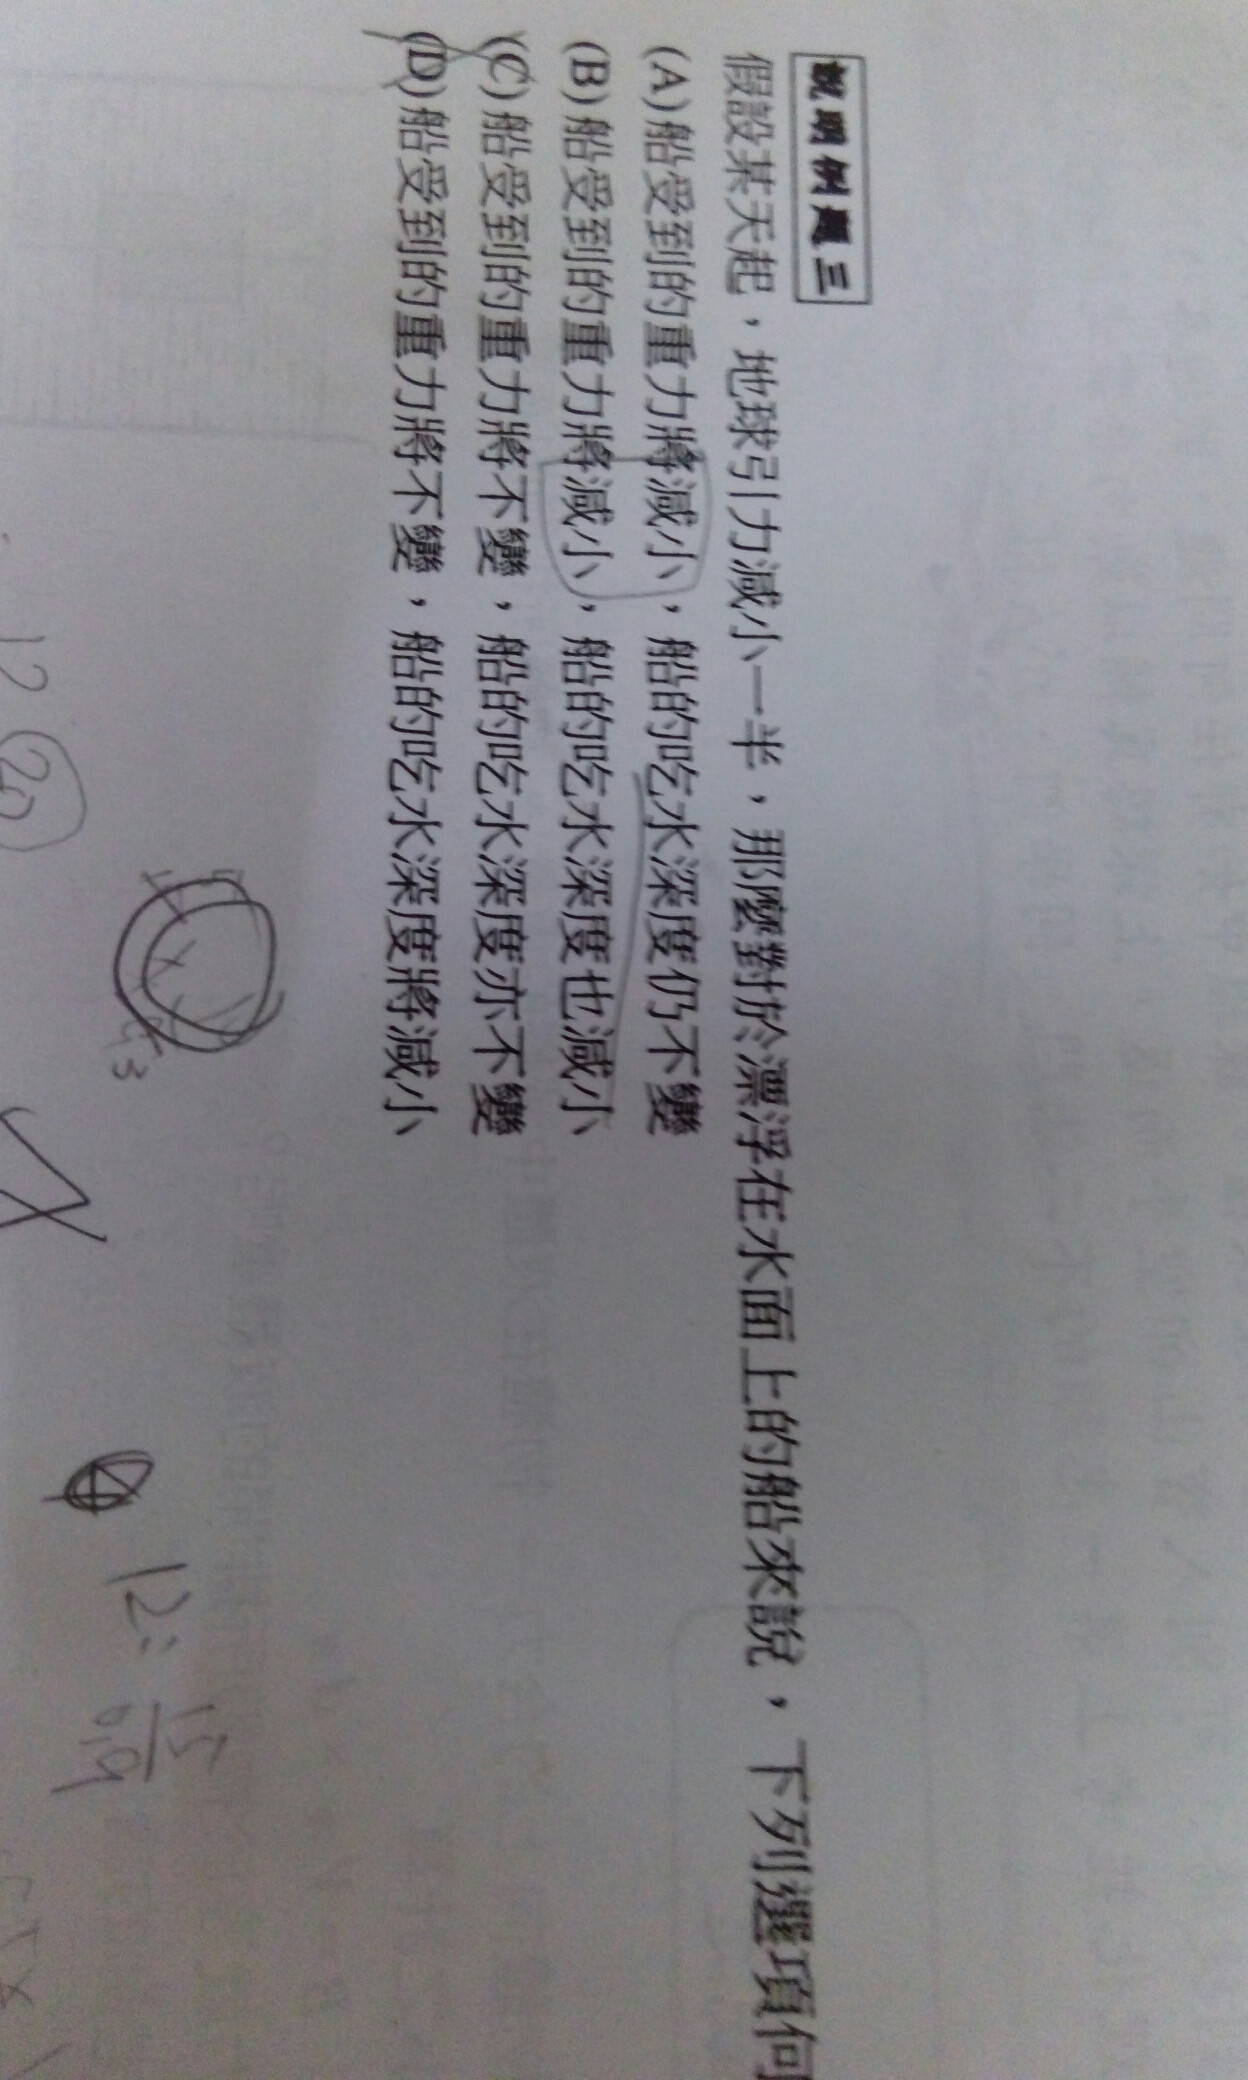 說明例題三
假設某天起，地球引力減小一半，那麼對於漂浮在水面上的船來說，下列選項何
(A)船受到的重力將減小，船的吃水深度仍不變
(B)船受到的重力將減小，船的吃水深度也減小
(C)船受到的重力將不變，船的吃水深度亦不變
(D)船受到的重力將不變，船的吃水深度將減小
12
20
12